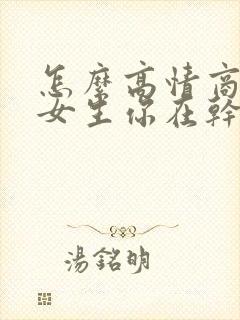 怎麼高情商
女生你在幹
湯銘明